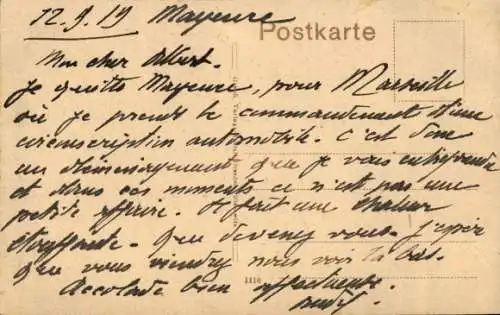 12.9.19 Mayence
Postkarte
Mon cher Albert.
Je quitte Mayence, pour Marseille
où je prends le commandement d'une
circonscription automobile. C'est donc
un déménagement que je vais entreprendre
et dans ces moments ce n'est pas une
petite affaire. Il fait une chaleur
étouffante. Que devenez vous. J'espère
que vous viendrez nous voir là bas.
Accolade bien affectueuse.
1116